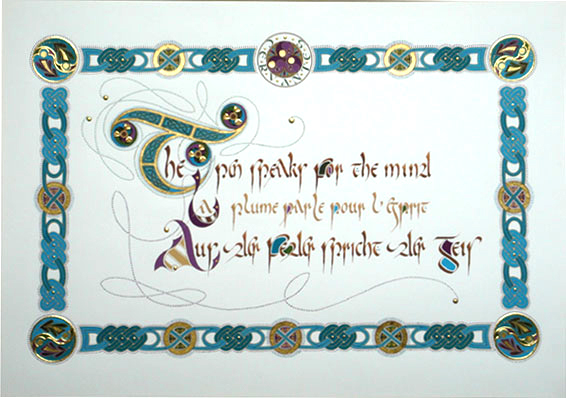 The pen speaks for the mind
La plume parle pour l'Esprit
Aus der Feder spricht der Geist